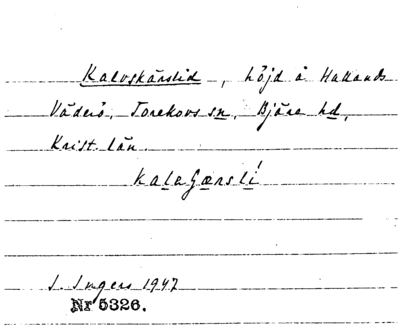 Kalvskärslid, höjd å Hallands
Väderö, Torekovs sn, Bjäre hd,
Krist. län.
kalagærslí
I. Ingers 1947
Nr 5326.